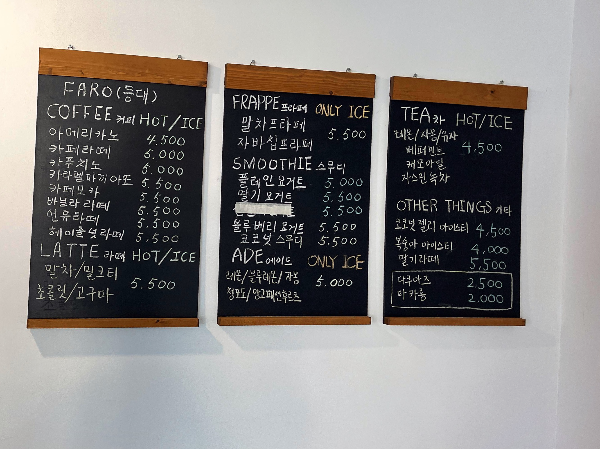 FARO(등대)
COFFEE 커피 HOT/ICE
아메리카노 4.500
카페라떼 5.000
카푸치노 5.000
카라멜마끼아또 5.500
카페모카 5.500
바닐라 라떼 5.500
연유라떼 5.500
헤이즐넛라떼 5.500
LATTE 라떼 HOT/ICE
말차/밀크티
초콜릿/고구마 5.500
FRAPPE 프라페 ONLY ICE
말차프라페
자바칩프라페 5.500
SMOOTHIE 스무디
플레인 요거트 5.000
딸기 요거트 5.500
5.500
블루베리 요거트 5.500
코코넛 스무디 5.500
ADE 에이드 ONLY ICE
레몬/블루레몬/자몽 5.000
청포도/망고패션후르츠
TEA 차 HOT/ICE
레몬/자몽/유자
페퍼민트 4,500
캐모마일
자스민 녹차
OTHER THINGS 기타
코코넛 젤리 아이스티 4,500
복숭아 아이스티 4,000
딸기라떼 5,500
다쿠아즈 2.500
마카롱 2.000